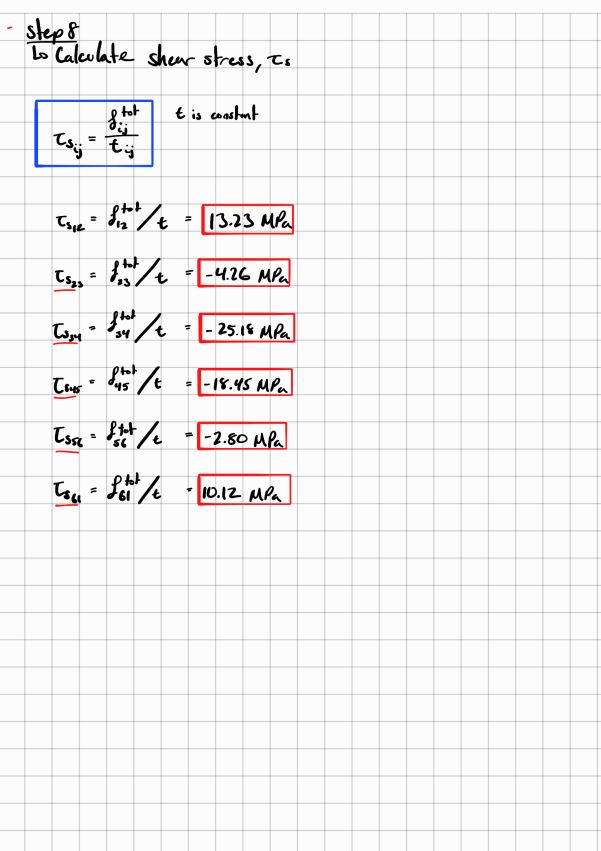 - Step 8
↳ Calculate shear stress, τs
τs_ij = f_ij^tot / t_ij t is constant
τs_12 = f_12^tot / t = 13.23 MPa
τs_23 = f_23^tot / t = -4.26 MPa
τs_34 = f_34^tot / t = -25.18 MPa
τs_45 = f_45^tot / t = -18.45 MPa
τs_56 = f_56^tot / t = -2.80 MPa
τs_61 = f_61^tot / t = 10.12 MPa